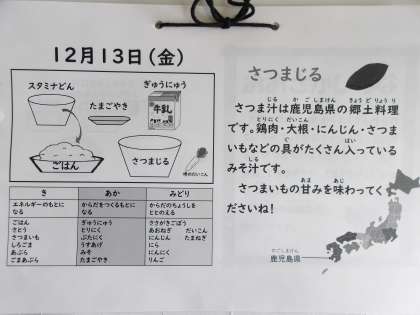 12月13日(金)
スタミナどん
ぎゅうにゅう
たまごやき
牛乳
ごはん
さつまじる
き
あか
みどり
エネルギーのもとに
なる
からだをつくるもとに
なる
からだのちょうしを
ととのえる
ごはん
さとう
さつまいも
しろごま
あぶら
ごまあぶら
ぎゅうにゅう
とりにく
ぶたにく
うすあげ
みそ
たまごやき
ささがきごぼう
あおねぎ だいこん
にんじん たまねぎ
にら
にんにく
りんご
さつまじる
じる かごしまけん きょうどりょうり
さつま汁は鹿児島県の郷土料理
とりにく だいこん
です。鶏肉・大根・にんじん・さつま
ぐ はい
いもなどの具がたくさん入っている
しる
みそ汁です。
あま あじ
さつまいもの甘みを味わってく
ださいね!
かごしまけん
鹿児島県